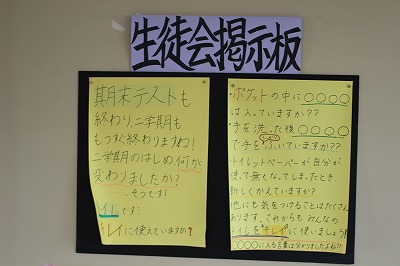 生徒会掲示板
期末テストも
終わり、二学期も
もうすぐ終わりますね!
二学期のはじめ何が
変わりましたか?
……そうです!
トイレです…
キレイに使えていますか?
・ポケットの中に○○○○
は入っていますか??
・手を洗った後○○○○
で手をふいていますか??
・トイレットペーパーが自分が
使って無くなってしまったとき
新しくかえていますか?
他にも気をつけることはたくさん
あります。これからもみんなの
トイレを"キレイ"に使いましょう!
○○○○に入る言葉は分かりましたよね!?